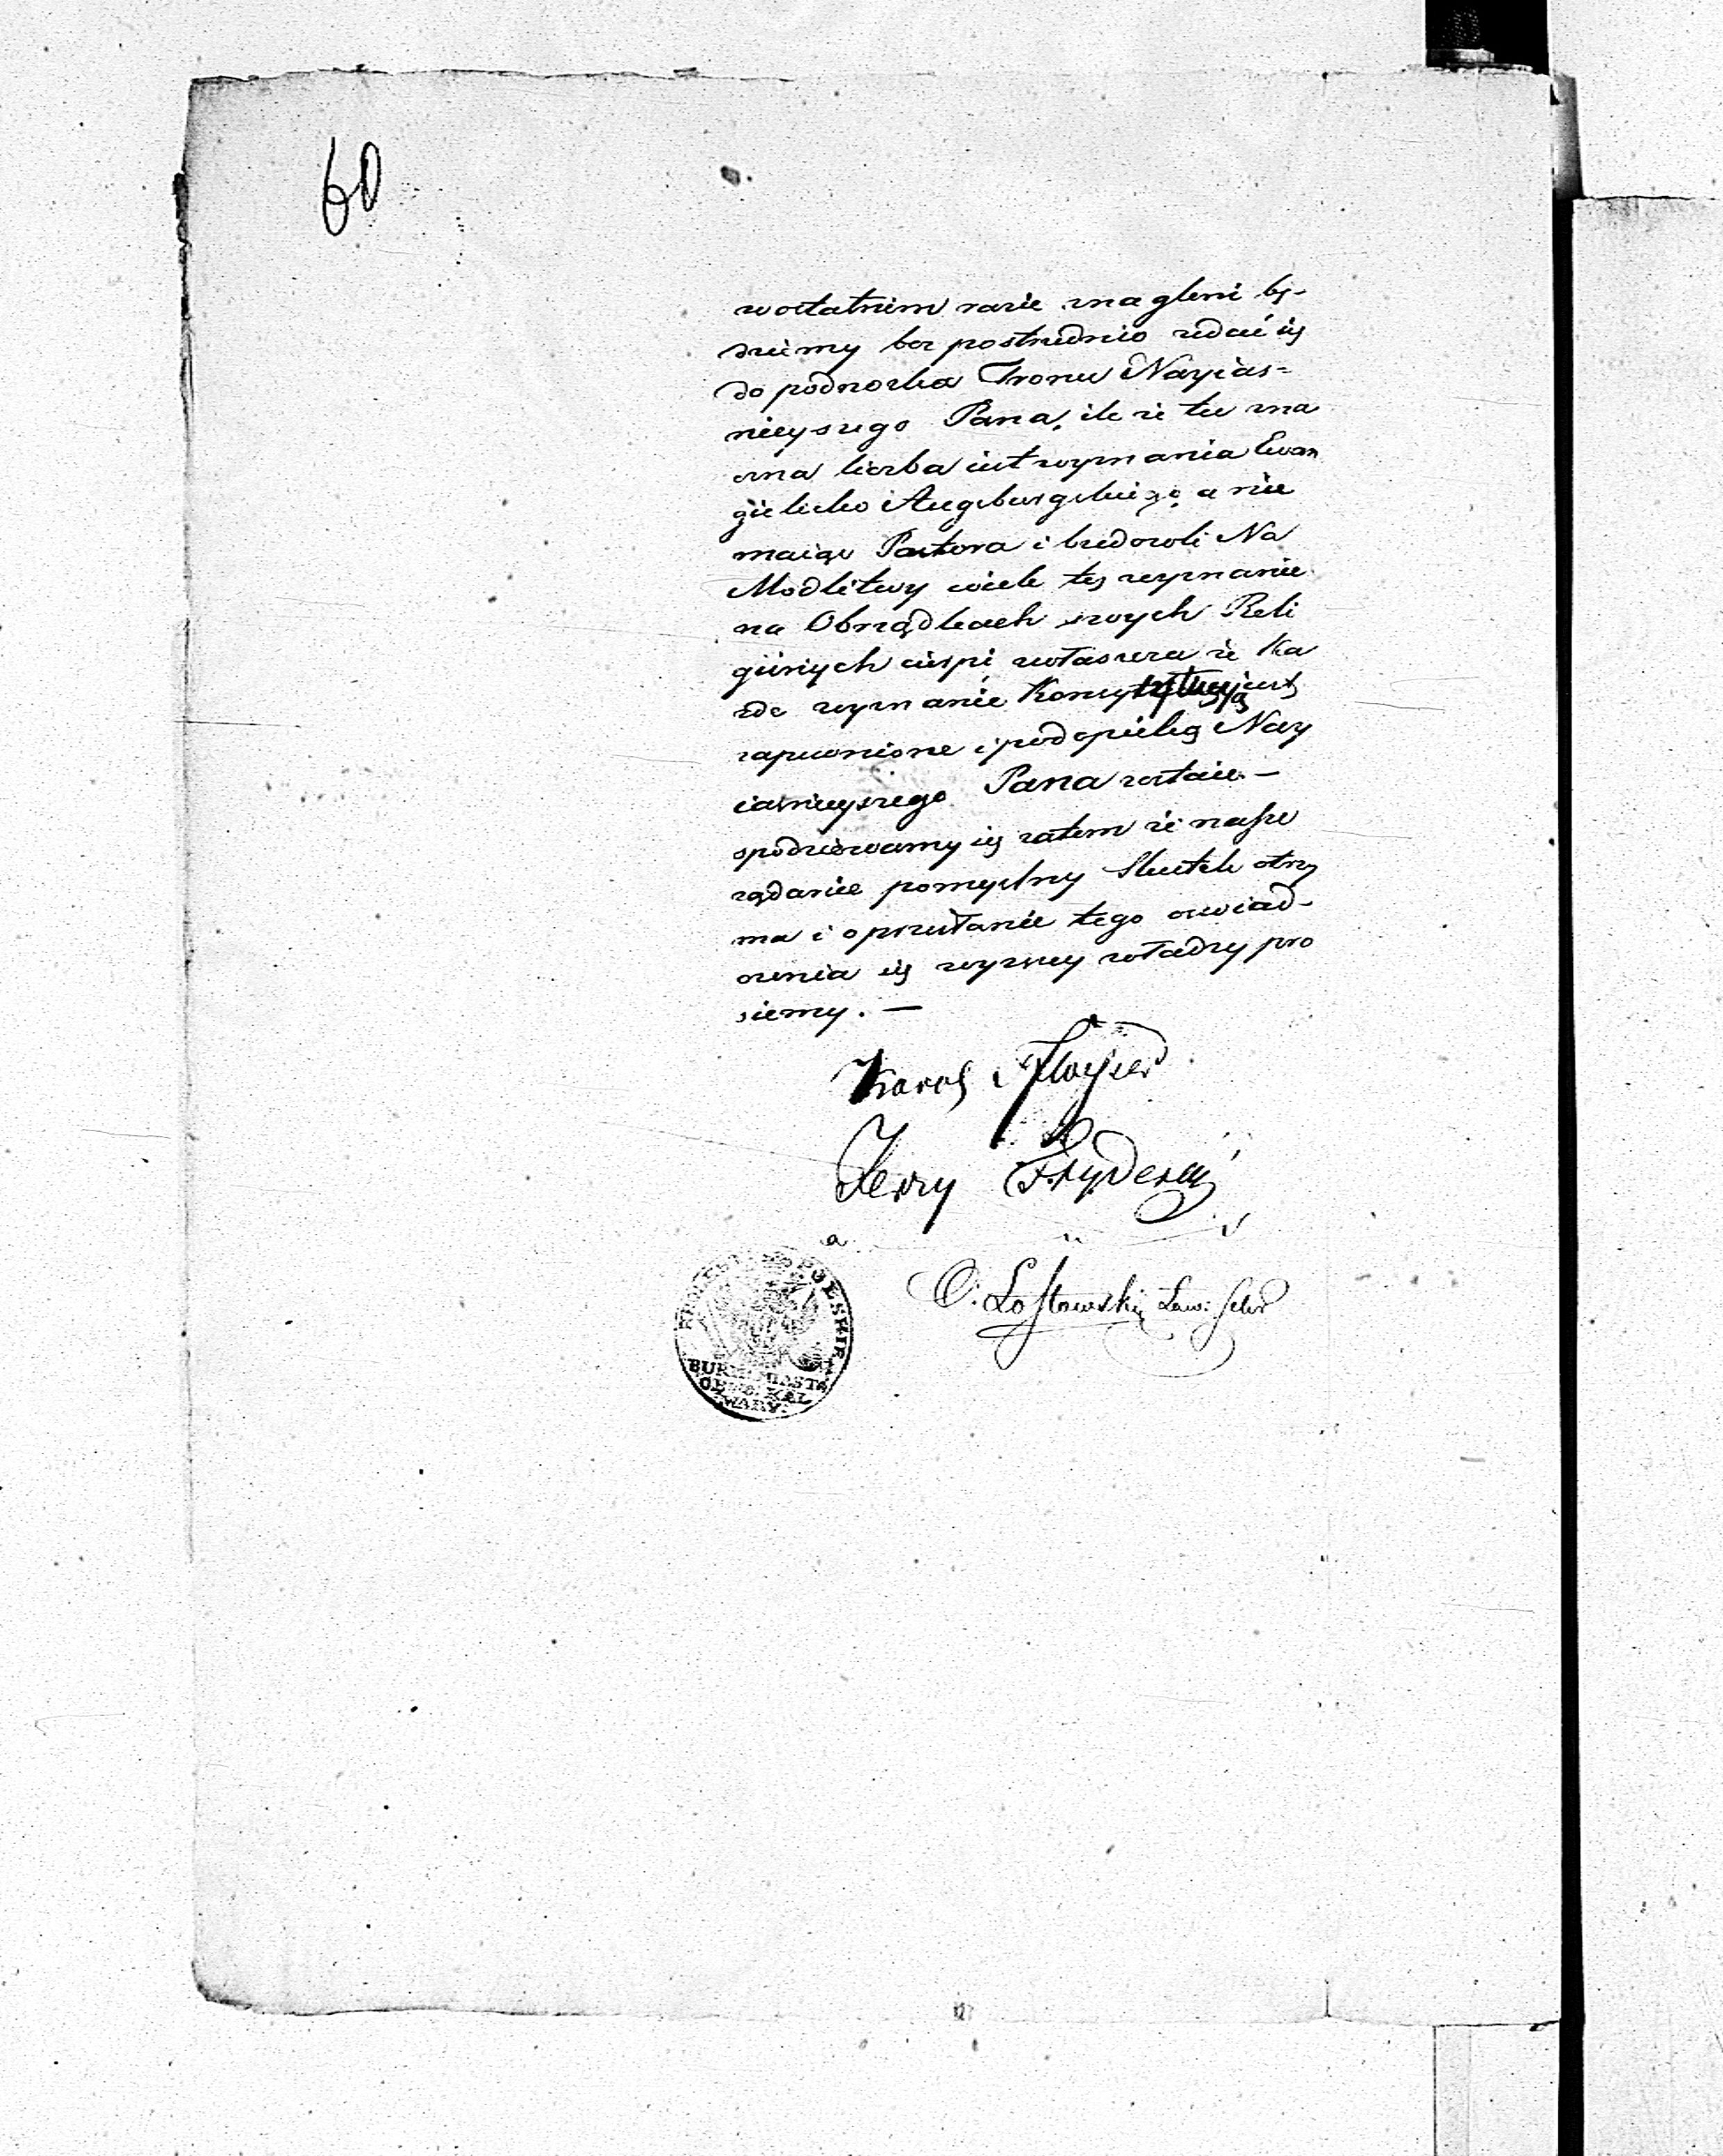 60
w ostatnim razie znagleni bę-
dziemy bez postrednio udać się
do podnożka Tronu Nayias=
nieyszego Pana, ile że tu zna
czna liczba iest wyznania Ewan
gielicko Augsburgskiego, a nie
maiąc Pastora i budowli Na
Modlitwy wiele te wyznanie
na Obrządkach swych Reli
giinych cierpi zwłaszcza że Ka
żde wyznanie Konstytucyją iest
zapewnione i pod opieką Nay
iasnieyszego Pana zostaie. —
spodziewamy się zatem że nasze
rządanie pomyslny Skutek otrzy
ma i o przesłanie tego oswiad-
czenia się wyższey władzy pro
siemy. —
Karol
Jerzy Fryderici
KROLESTWO POLSKIE
BURM: MIASTA
OBWO: KAL
WARY: